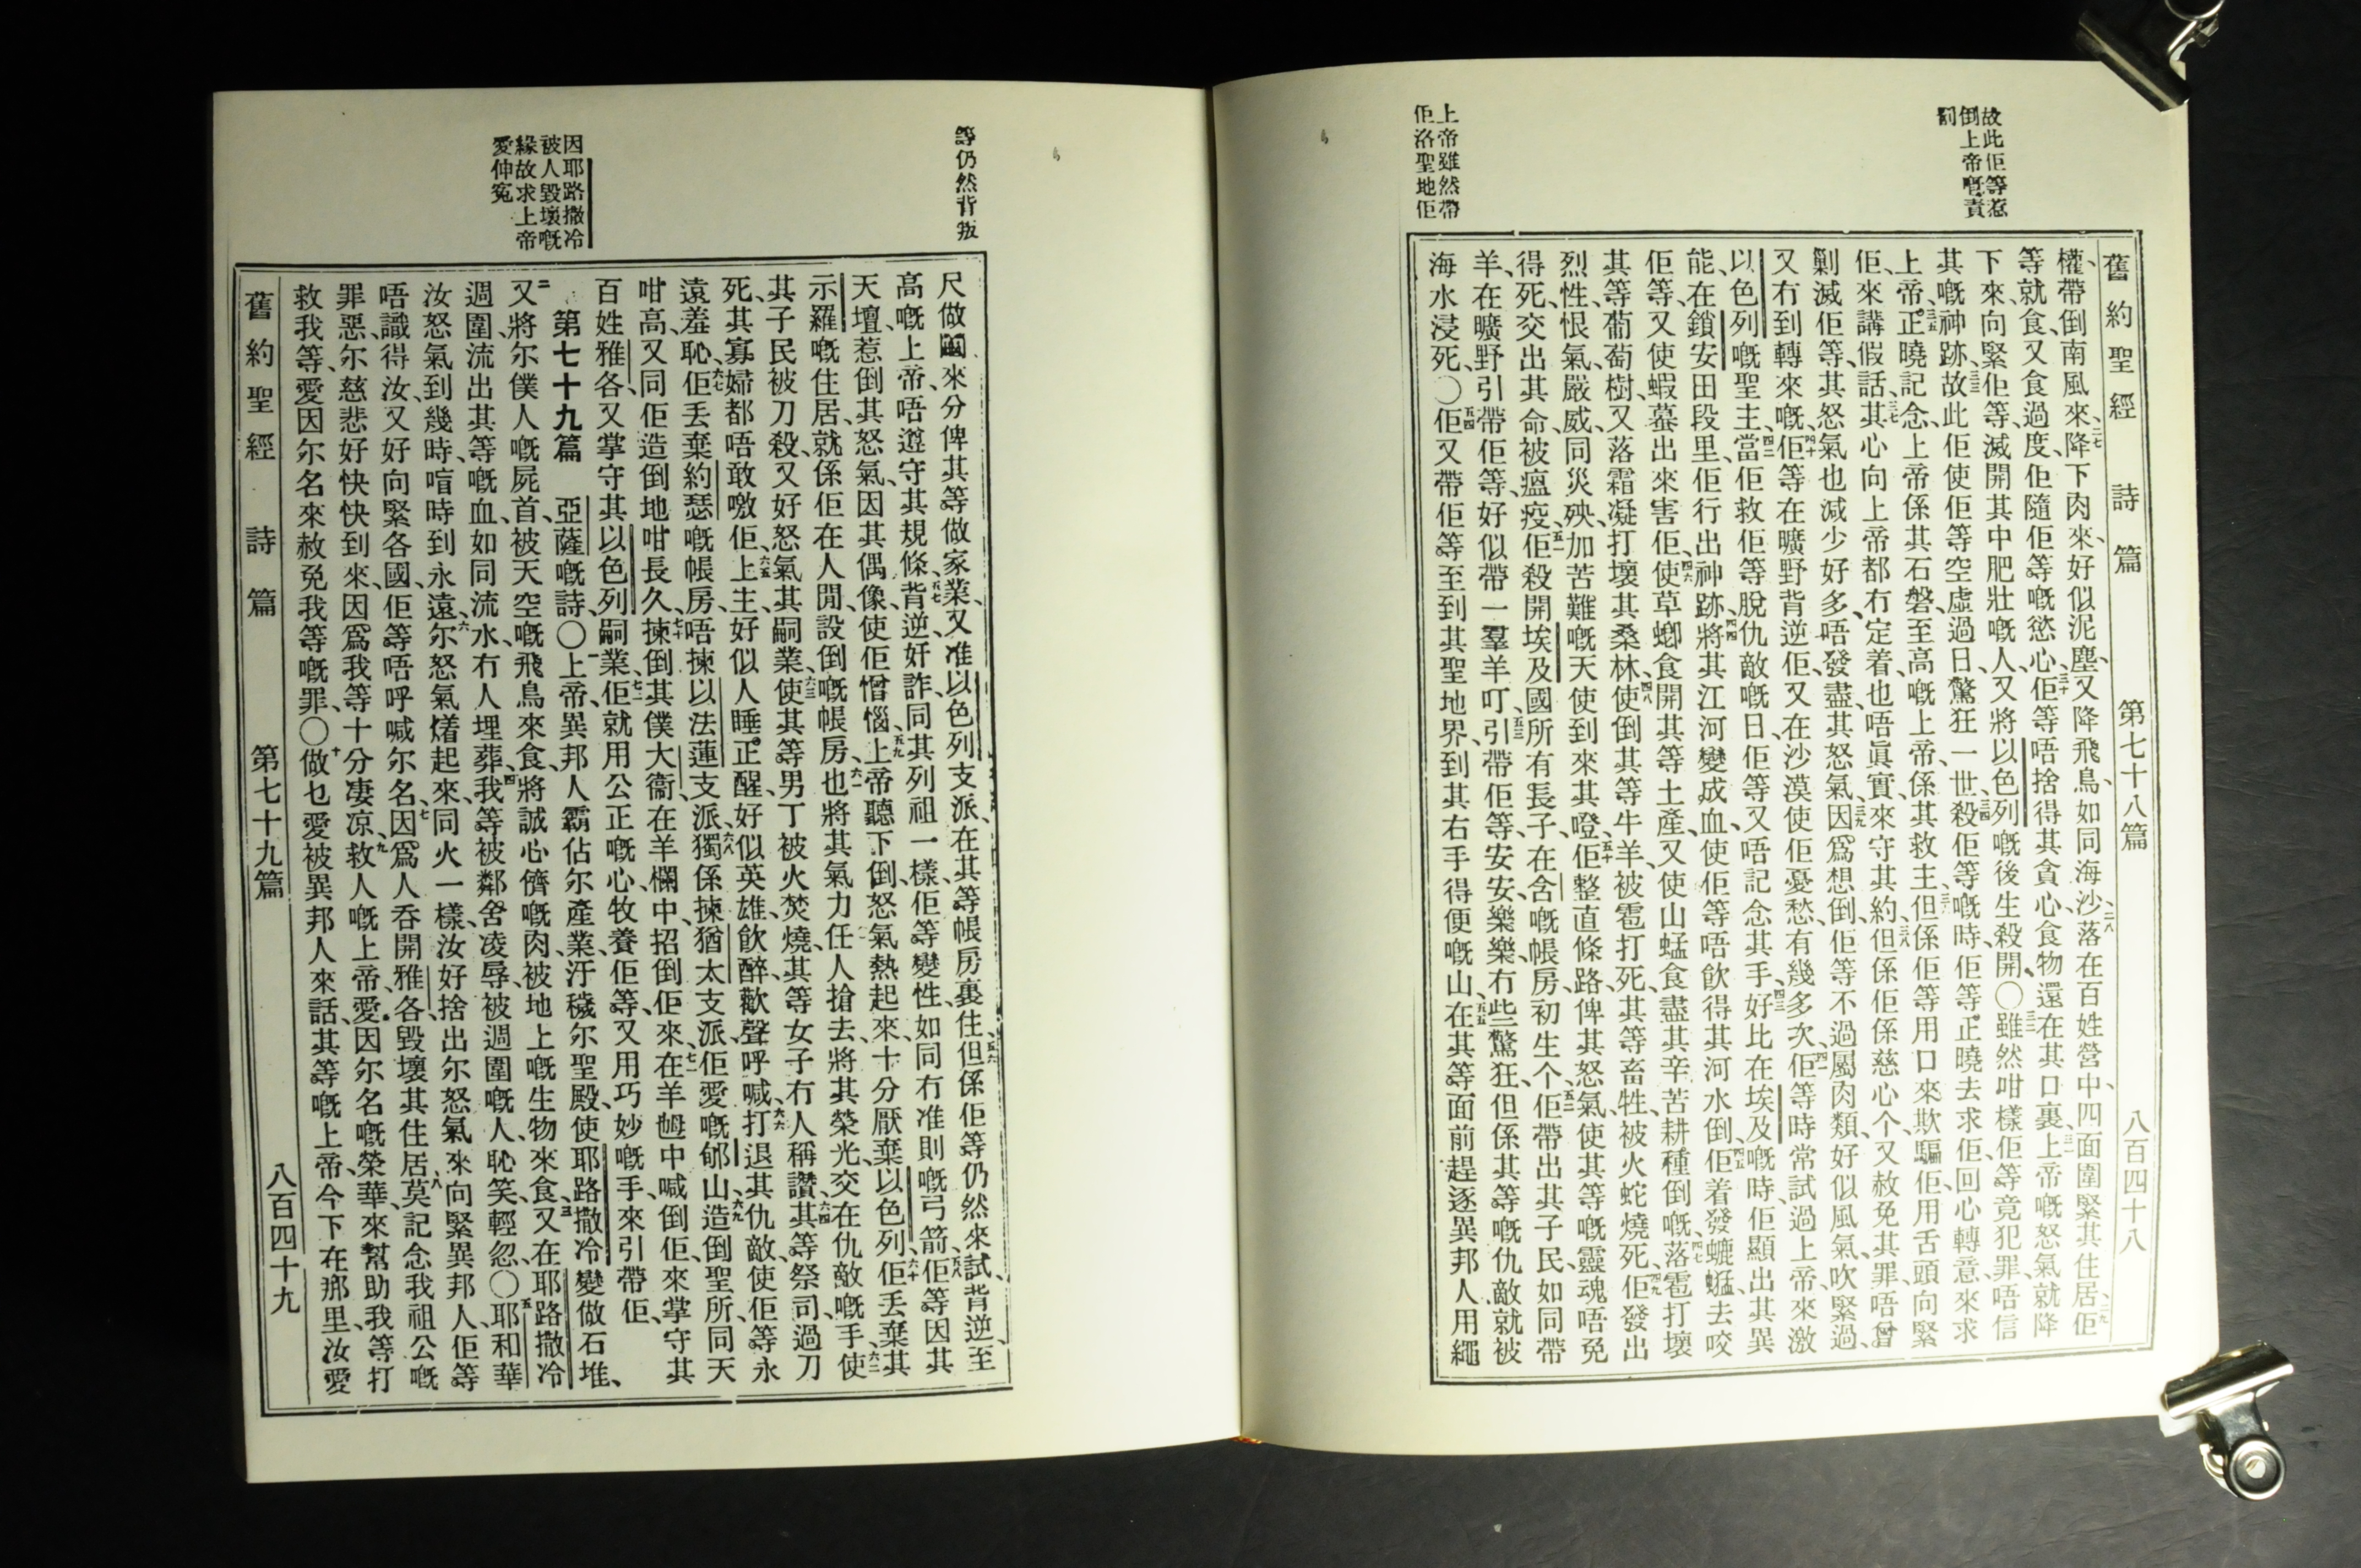 故此佢等惹
倒上帝嘅責
罰
上帝雖然帶
佢洛聖地佢
舊約聖經 詩篇 第七十八篇 八百四十八
權、帶倒南風來、二七降下肉來、好似泥塵、又降飛鳥、如同海沙、二八落在百姓營中、四面圍緊其住居、二九佢
等就食、又食過度、佢隨佢等嘅慾心、三十佢等唔捨得其貪心、食物還在其口裏、三一上帝嘅怒氣就降
下來、向緊佢等、滅開其中肥壯嘅人、又將以色列嘅後生殺開、〇三二雖然咁樣、佢等竟犯罪、唔信
其嘅神跡、三三故此佢使佢等空虛過日、驚狂一世、三四殺佢等嘅時、佢等正曉去求佢、回心轉意、來求
上帝、三五正曉記念上帝係其石磐、至高嘅上帝、係其救主、三六但係佢等用口來欺騙佢、用舌頭向緊
佢、來講假話、三七其心向上帝都冇定着、也唔眞實、來守其約、三八但係佢係慈心个、又赦免其罪、唔曾
剿滅佢等、其怒氣也減少好多、唔發盡其怒氣、三九因爲想倒、佢等不過屬肉類、好似風氣、吹緊過、
又冇到轉來嘅、四十佢等在曠野背逆佢、又在沙漠使佢憂愁、有幾多次、四一佢等時常試過上帝、來激
以色列嘅聖主、四二當佢救佢等脫仇敵嘅日、佢等又唔記念其手、四三好比在埃及嘅時、佢顯出其異
能、在鎖安田段里、佢行出神跡、四四將其江河變成血、使佢等唔飲得其河水倒、四五佢着發螕蜢去咬
佢等、又使蝦蟇出來害佢、四六使草螂食開其等土產、又使山蜢食盡其辛苦耕種倒嘅、四七落雹打壞
其等葡萄樹、又落霜凝打壞其桑林、四八使倒其等牛羊、被雹打死、其等畜牲、被火蛇燒死、四九佢發出
烈性、恨氣、嚴威、同災殃、加苦難嘅天使到來其嶝、五十佢整直條路、俾其怒氣、使其等嘅靈魂唔免
得死、交出其命、被瘟疫、五一佢殺開埃及國所有長子、在含嘅帳房、初生个、五二佢帶出其子民、如同帶
羊、在曠野引帶佢等、好似帶一羣羊叮、五三引帶佢等、安安樂樂、冇些驚狂、但係其等嘅仇敵、就被
海水浸死、〇五四佢又帶佢等、至到其聖地界、到其右手得便嘅山、五五在其等面前、趕逐異邦人、用繩
等仍然背叛
因耶路撒冷
被人毀壞嘅
緣故求上帝
愛伸寃
尺做鬮來分俾其等做家業、又准以色列支派、在其等帳房裏住、五六但係佢等仍然來試、背逆、至
高嘅上帝、唔遵守其規條、五七背逆、奸詐、同其列祖一樣、佢等變性、如同冇准則嘅弓箭、五八佢等因其
天壇、惹倒其怒氣、因其偶像、使佢憎惱、五九上帝聽下倒、怒氣熱起來、十分厭棄以色列、六十佢丟棄其
示羅嘅住居、就係佢在人間設倒嘅帳房、六一也將其氣力任人搶去、將其榮光、交在仇敵嘅手、六二使
其子民被刀殺、又好怒氣其嗣業、六三使其等男丁被火焚燒、其等女子冇人稱讚、六四其等祭司、過刀
死、其寡婦都唔敢噭佢、六五上主、好似人睡、正醒、好似英雄、飲醉、歡聲呼喊、六六打退其仇敵、使佢等永
遠羞恥、六七佢丟棄約瑟嘅帳房、唔揀以法蓮支派、六八獨係揀猶太支派、佢愛嘅郇山、六九造倒聖所、同天
咁高、又同佢造倒地咁長久、七十揀倒其僕大衞、在羊欄中、招倒佢來、七一在羊乸中喊倒佢、來掌守其
百姓雅各、又掌守其以色列嗣業、七二佢就用公正嘅心、牧養佢等、又用巧妙嘅手、來引帶佢、
第七十九篇 亞薩嘅詩、〇一上帝、異邦人霸佔尔產業、汙穢尔聖殿、使耶路撒冷變做石堆、
二又將尔僕人嘅屍首、被天空嘅飛鳥來食、將誠心儕嘅肉、被地上嘅生物來食、三又在耶路撒冷
週圍、流出其等嘅血、如同流水、冇人埋葬、四我等被鄰舍凌辱、被週圍嘅人、恥笑、輕忽、〇五耶和華
汝怒氣到幾時、喑時到永遠、六尔怒氣㷮起來、同火一樣、汝好捨出尔怒氣、來向緊異邦人、佢等
唔識得汝、又好向緊各國、佢等唔呼喊尔名、七因爲人吞開雅各、毀壞其住居、八莫記念我祖公嘅
罪惡、尔慈悲好快快到來、因爲我等十分凄凉、九救人嘅上帝、愛因尔名嘅榮華、來幫助我等、打
救我等、愛因尔名來赦免我等嘅罪、〇十做乜愛被異邦人來話、其等嘅上帝今下在那里、汝愛
舊約聖經 詩篇 第七十九篇 八百四十九